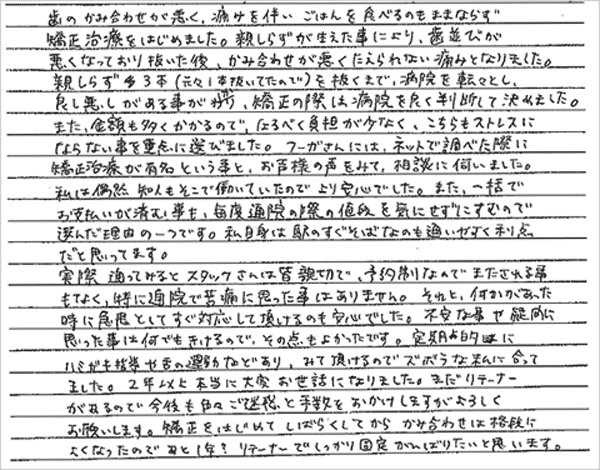 歯のかみ合わせが悪く、痛みを伴いごはんを食べるのもままならず
矯正治療をはじめました。親しらずが生えた事により、歯並びが
悪くなっており抜いた後、かみ合わせが悪くたえられない痛みとなりました。
親しらず 3本(元々1本抜いてたので)を抜くまで、病院を転々とし、
良し悪しがある事がわかり、矯正の際は病院を良く判断して決めました。
また、金額も多くかかるので、なるべく負担が少なく、こちらもストレスに
ならない事を重点に選びました。フーガさんには、ネットで調べた際に
矯正治療が有名という事と、お客様の声をみて、相談に伺いました。
私は偶然知人もそこで働いていたのでより安心でした。また、一括で
お支払いが済む事も、毎度通院の際の値段を気にせずにすむので
選んだ理由の一つです。私自身は駅のすぐそばなのも通いやすく利点
だと思ってます。
実際通ってみるとスタッフさんは皆親切で、予約制なのでまたされる事
もなく、特に通院で苦痛に思った事はありません。それと、何かがあった
時に急患としてすぐ対応して頂けるのも安心でした。不安な事や疑問に
思った事は何でもきけるので、その点もよかったです。定期的には
ハミガキ指導や舌の運動などあり、みて頂けるのでズボラな私に合って
ました。2年以上本当に大変お世話になりました。まだリテーナー
があるので今後も色々ご迷惑と手数をおかけしますがよろしく
お願いします。矯正をはじめてしばらくしてからかみ合わせは格段に
よくなったのであと1年?リテーナーでしっかり固定がんばりたいと思います。